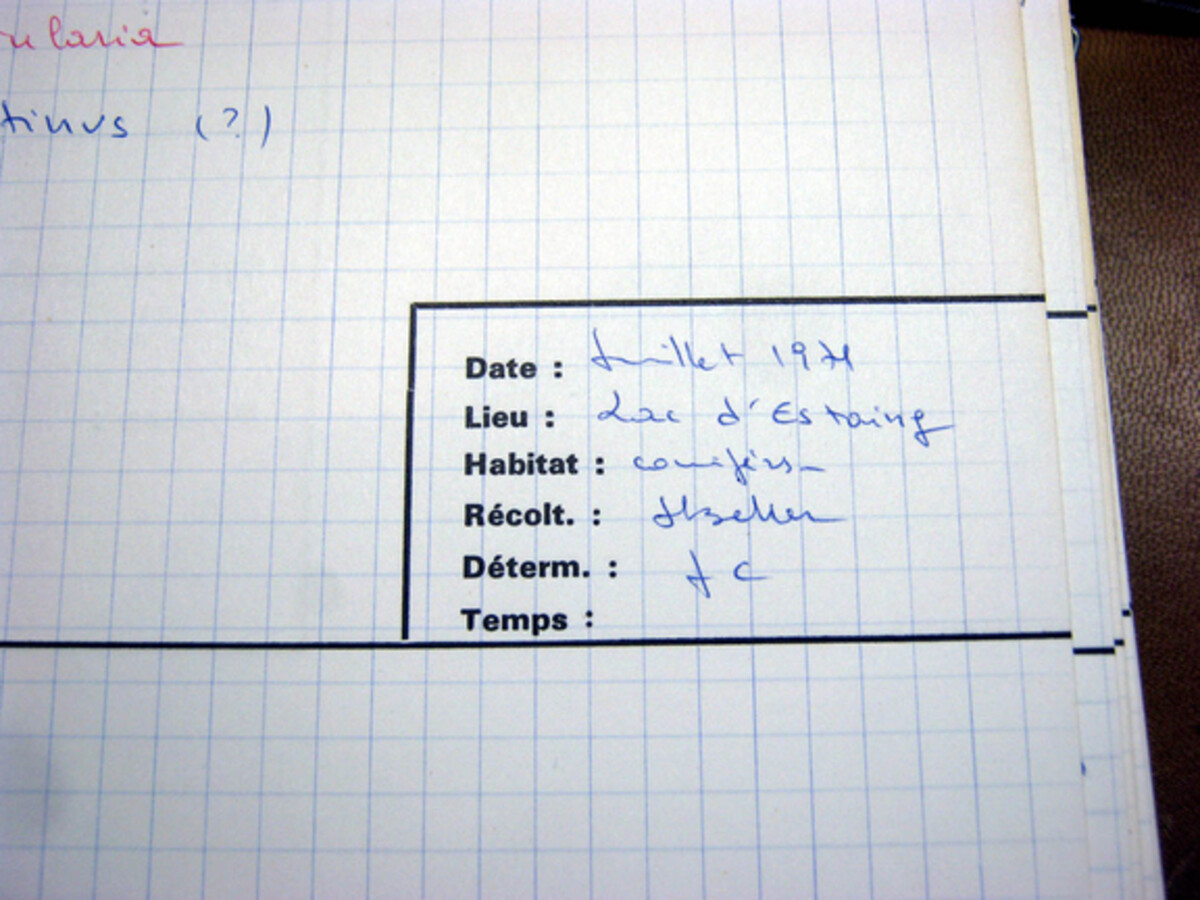 ularia
tinus (?)
Date : Juillet 1971
Lieu : Lac d'Estaing
Habitat : conifères
Récolt. :
Déterm. : JC
Temps :